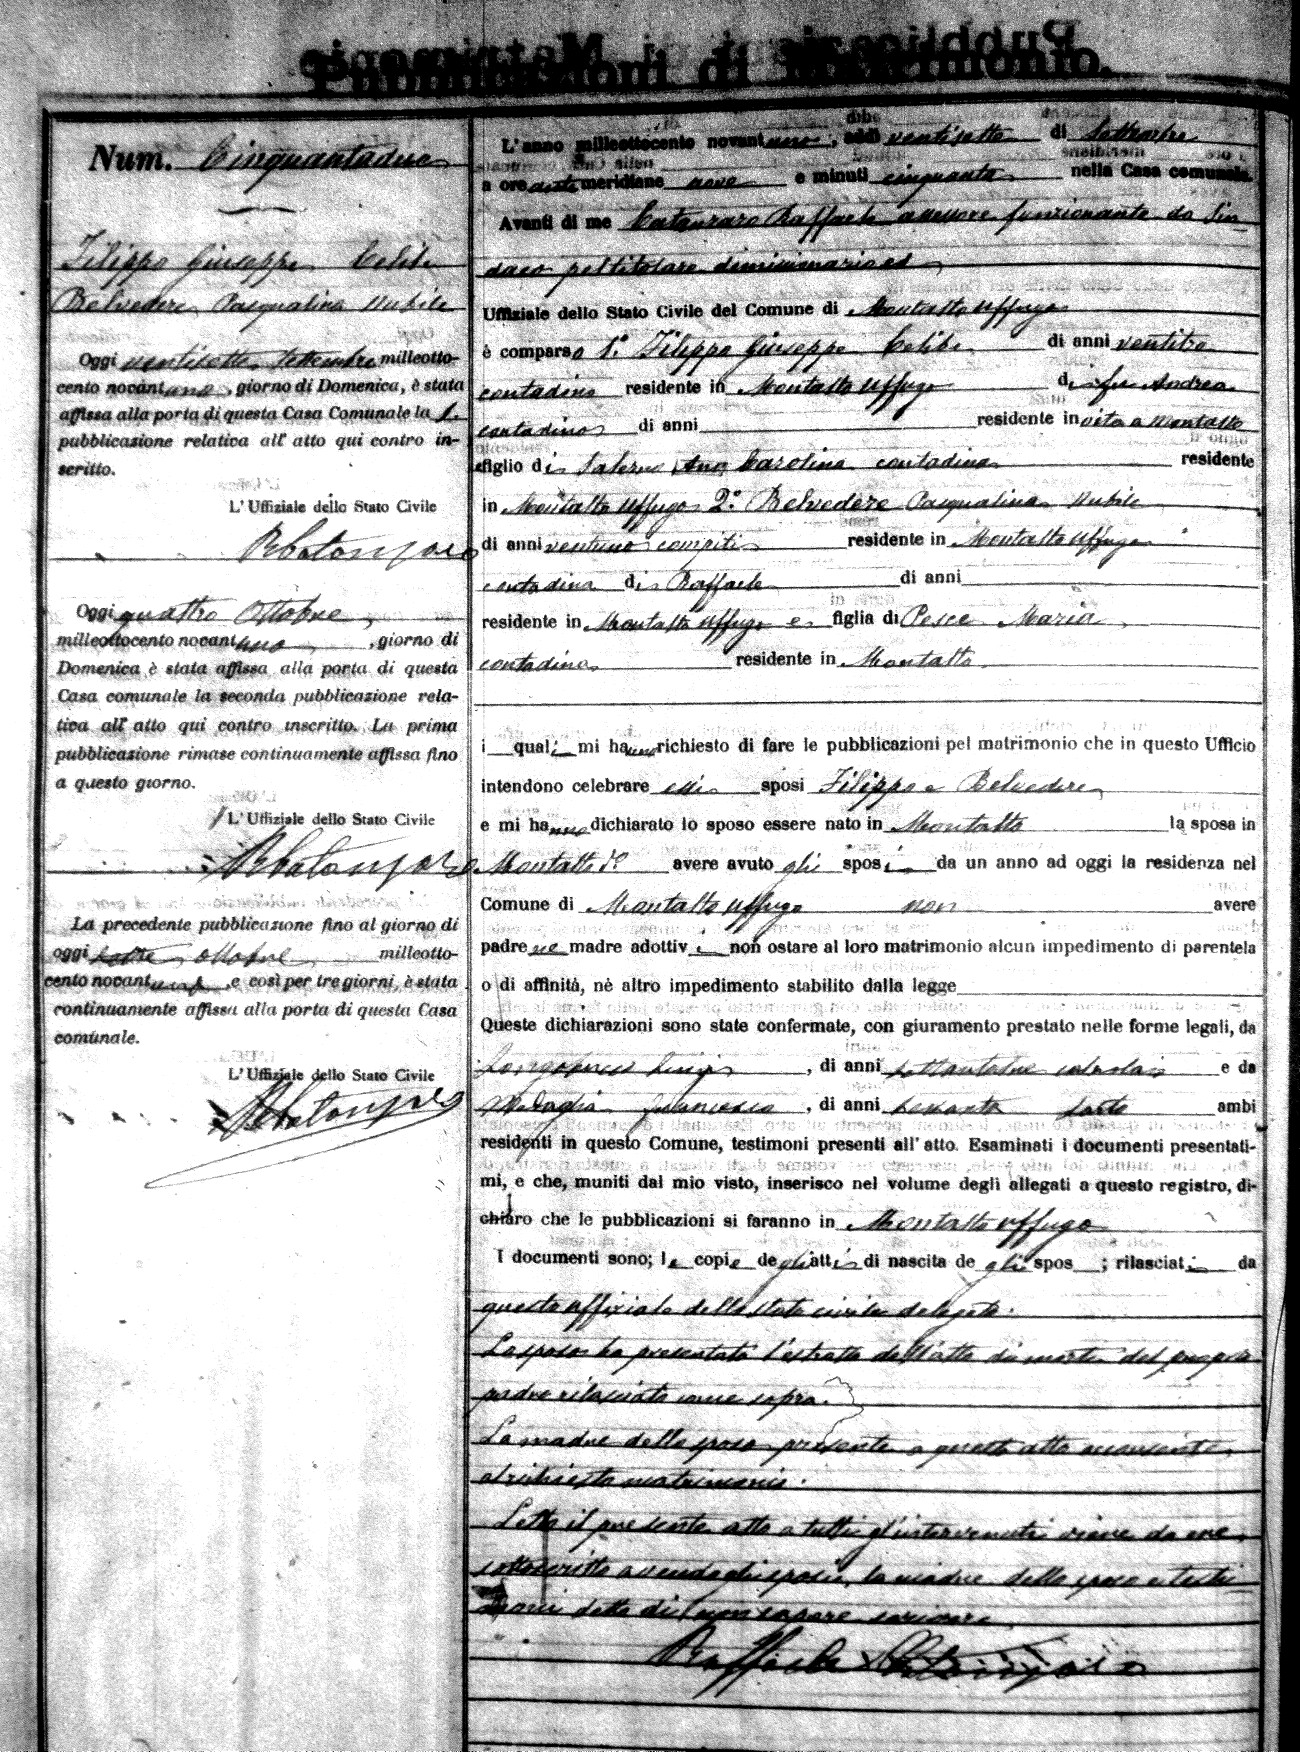 Pubblicazioni di Matrimonio
Num. Cinquantadue
Filippo Giuseppe Celibe
Belvedere Pasqualina nubile
Oggi ventisette Settembre milleotto-
cento novantuno, giorno di Domenica, è stata
affissa alla porta di questa Casa Comunale la 1.
pubblicazione relativa all' atto qui contro in-
scritto.
L' Uffiziale dello Stato Civile
RCatanzaro
Oggi quattro Ottobre
milleottocento novantuno, giorno di
Domenica è stata affissa alla porta di questa
Casa comunale la seconda pubblicazione rela-
tiva all' atto qui contro inscritto. La prima
pubblicazione rimase continuamente affissa fino
a questo giorno.
L' Uffiziale dello Stato Civile
RCatanzaro
La precedente pubblicazione fino al giorno di
oggi sette ottobre milleotto-
cento novantuno, e così per tre giorni, è stata
continuamente affissa alla porta di questa Casa
comunale.
L' Uffiziale dello Stato Civile
RCatanzaro
L' anno milleottocento novantuno, addì ventisette di Settembre
a ore anti meridiane nove e minuti cinquanta nella Casa comunale.
Avanti di me Catanzaro Raffaele assessore funzionante da Sin-
daco pel titolare dimissionario
Uffiziale dello Stato Civile del Comune di Montalto Uffugo
è comparso 1.° Filippo Giuseppe Celibe di anni ventitre
contadino residente in Montalto Uffugo di fu Andrea
contadino di anni residente in vita a Montalto
figlio di Salerno Ana Carolina contadina residente
in Montalto Uffugo 2.° Belvedere Pasqualina nubile
di anni ventuno compiti residente in Montalto Uffugo
contadina di Raffaele di anni
residente in Montalto Uffugo e figlia di Pesce Maria
contadina residente in Montalto
i quali mi hanno richiesto di fare le pubblicazioni pel matrimonio che in questo Ufficio
intendono celebrare essi sposi Filippo e Belvedere
e mi hanno dichiarato lo sposo essere nato in Montalto la sposa in
Montalto d° avere avuto gli sposi da un anno ad oggi la residenza nel
Comune di Montalto Uffugo non avere
padre ne madre adottivi non ostare al loro matrimonio alcun impedimento di parentela
o di affinità, nè altro impedimento stabilito dalla legge
Queste dichiarazioni sono state confermate, con giuramento prestato nelle forme legali, da
Luigi, di anni settantadue e da
Francesco, di anni sessanta sarto ambi
residenti in questo Comune, testimoni presenti all' atto. Esaminati i documenti presentati-
mi, e che, muniti dal mio visto, inserisco nel volume degli allegati a questo registro, di-
chiaro che le pubblicazioni si faranno in Montalto Uffugo
I documenti sono; le copie degli atti di nascita de gli spos ; rilasciati da
questo uffiziale dello stato civile delegato.
Lo sposo ha presentato l'estratto dell'atto di morte del proprio
padre rilasciato come sopra.
La madre dello sposo presente a questo atto acconsente
al richiesto matrimonio.
Letto il presente atto a tutti gl'intervenuti viene da me
sottoscritto avendo gli sposi, la madre dello sposo e testi-
moni detto di non sapere scrivere
Raffaele Catanzaro